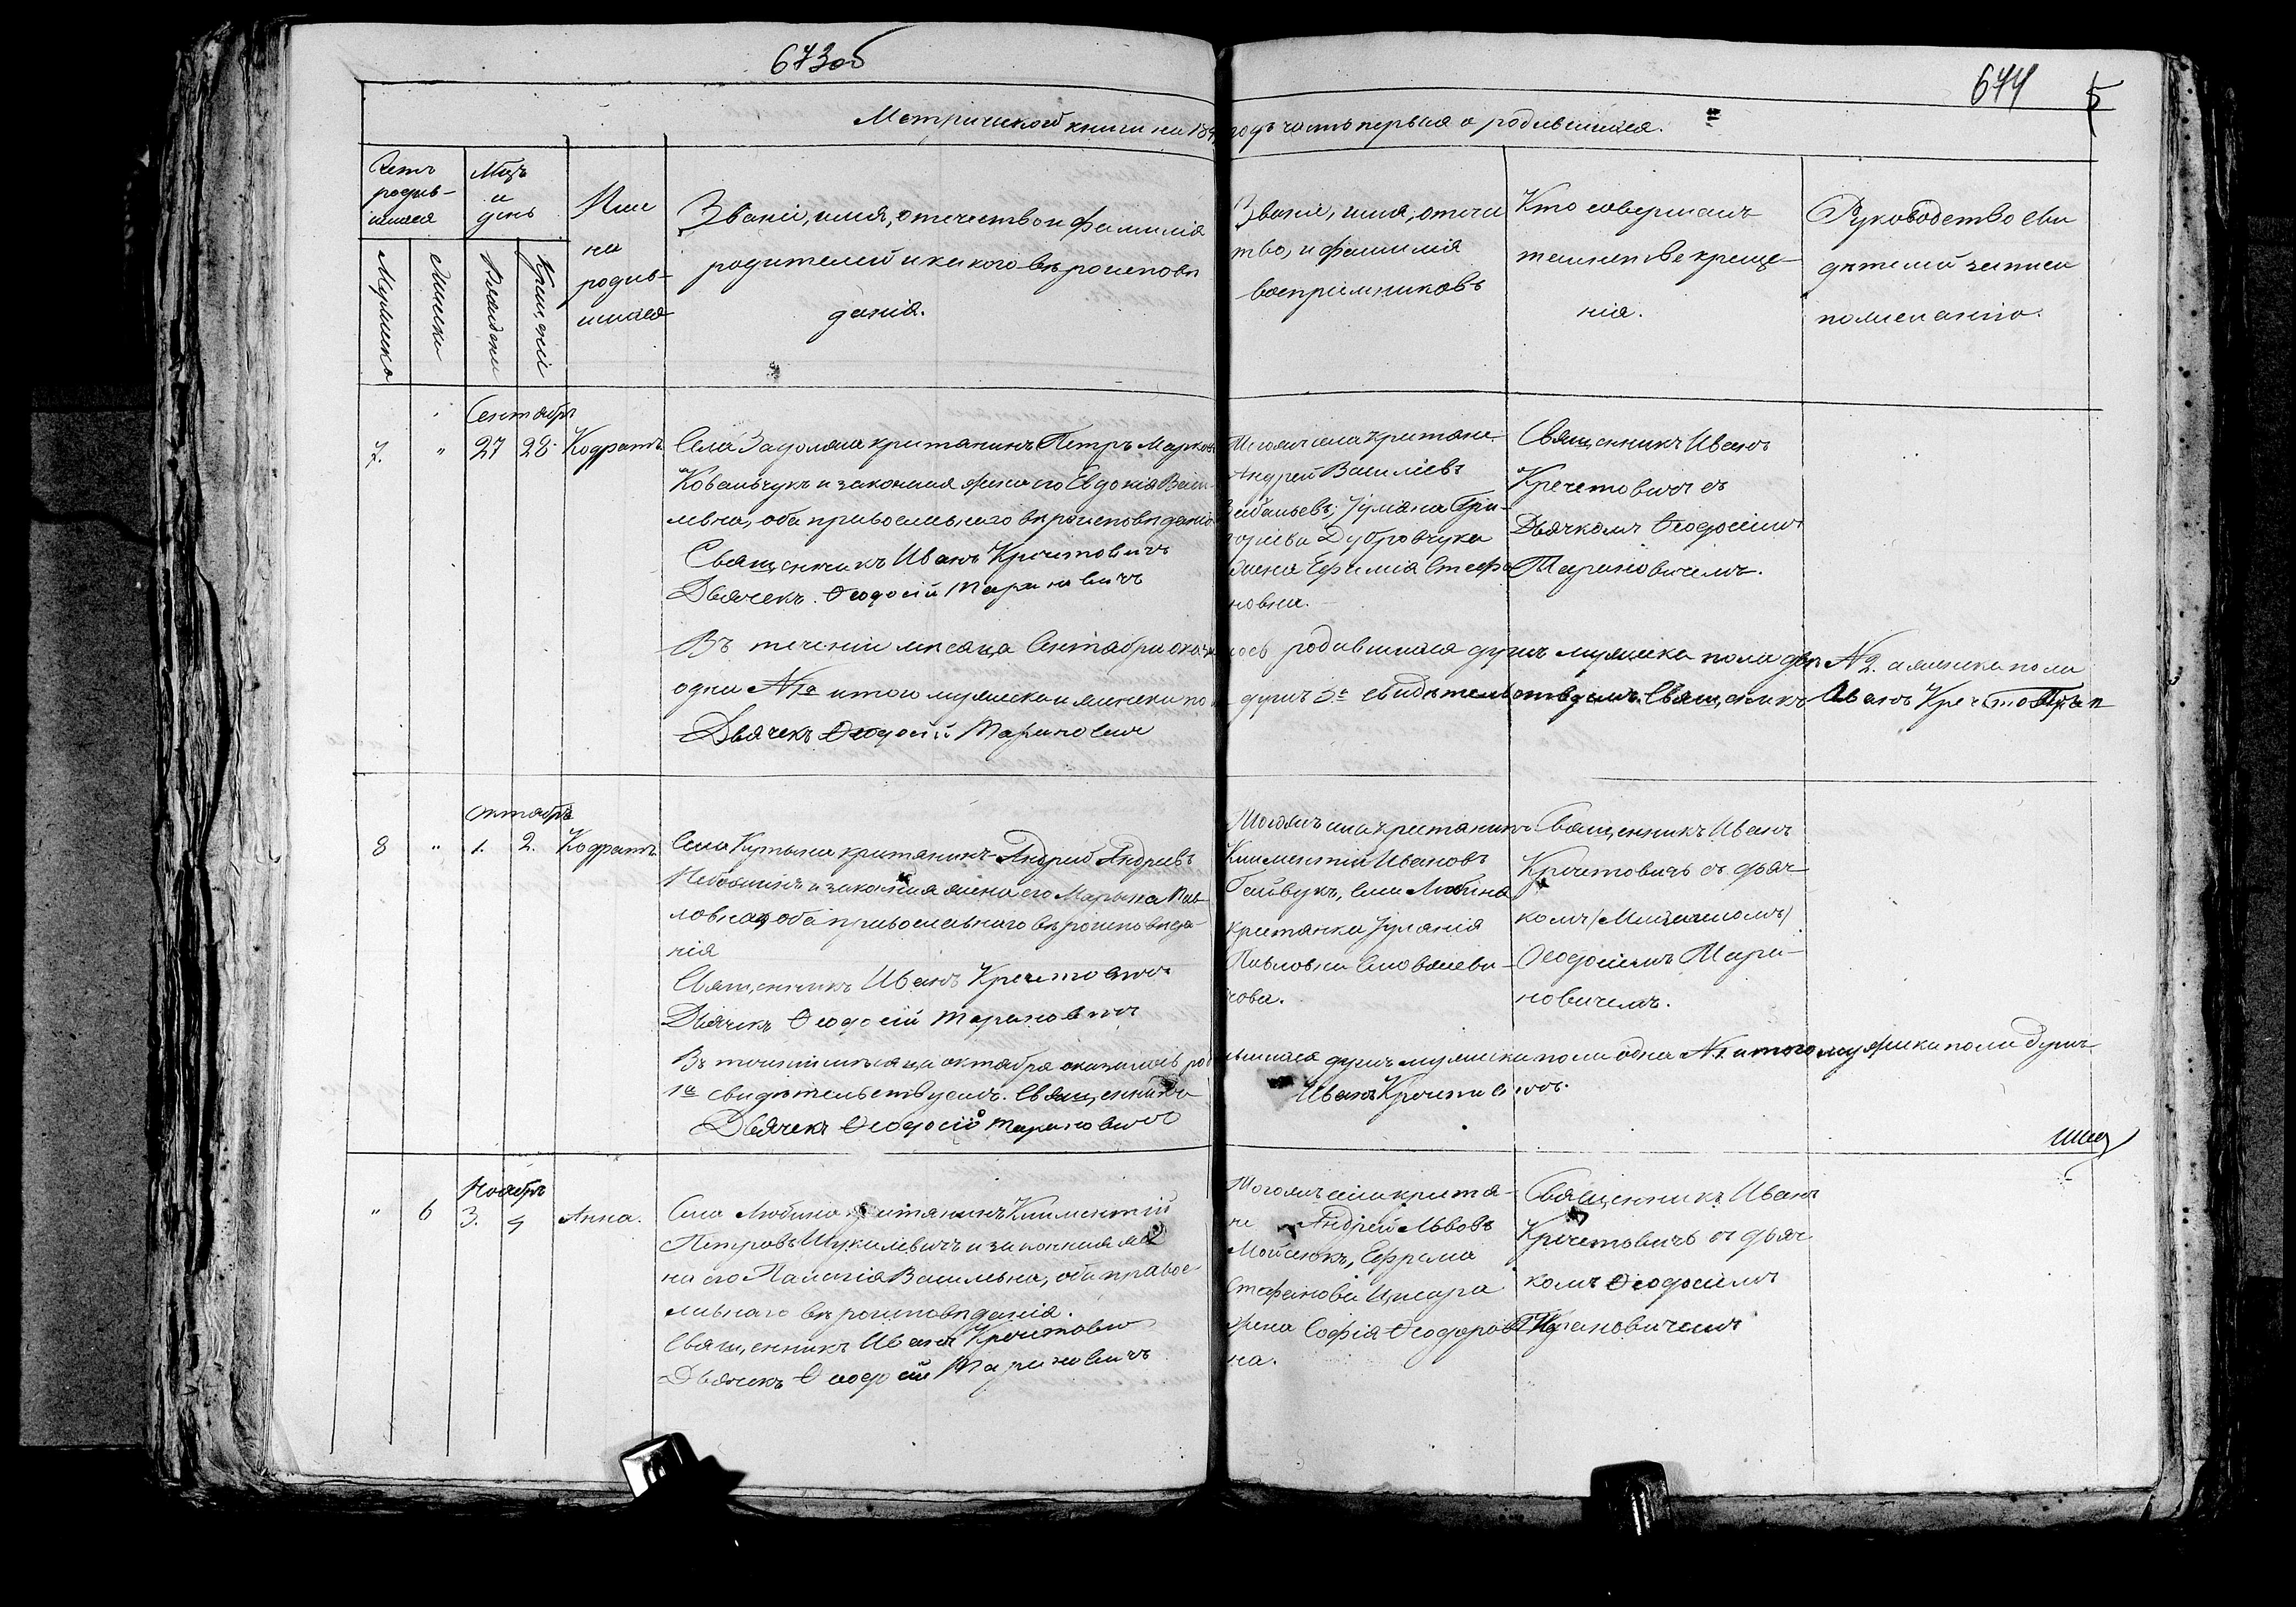 673об
674 5
Метрической книги на 184 годъ часть первая о родившихся.
Счетъ родив-шихся
Мцъ и день
Имя на родив-шихся
Званіе, имя, отечество и фамилія
родителей и какого вѣроисповѣ
данія.
Званіе, имя, отече
ство, и фамилія
воспріемниковъ
Кто совершалъ
таинство креще-
нія.
Руководство сви
дѣтелей записи
по желанію.
Мужеска
Женска
Рожденія
Крещенія
Сентябрь
7. " 27 28. Кодратъ
Села Задолжа крестянинъ Петръ Марковъ
Ковальчукъ и законная жена его Евдокія Васи-
льевна, оба православнаго вѣроисповѣданія
Священникъ Иванъ Кречетовичъ
Дьячекъ Ѳеодосій Мариновичъ
Тогожъ села крестяне
Андрей Василіевъ
Іуліана Гри-
горіева Дубровчука
жена Ефимія Стефа
новна.
Священникъ Иванъ
Кречетовичъ съ
Дьячкомъ Ѳеодосіемъ
Мариновичемъ.
Въ теченіи мѣсяца Сентября оказалось родившихся душъ мужеска пола двѣ №2. а женска пола
одна №1а итого мужеска и женска пола душъ 3. свидѣтельствуемъ. Священникъ Иванъ Кречетовичъ
Дьячекъ Ѳеодосій Мариновичъ
Октябрь
8 " 1. 2. Кодратъ
Села Кутына крестянинъ Андрей Андреевъ
и законная жена его Марьяна Пав-
ловна, оба православнаго вѣроисповѣда-
нія
Священникъ Иванъ Кречетовичъ
Дьячекъ Ѳеодосій Мариновичъ
Тогожъ села крестянинъ
Климентій Ивановъ
Гайвукъ, села Любина
крестянка Іуліанія
Павловна
Священникъ Иванъ
Кречетовичъ съ дьяч-
комъ
Ѳеодосіемъ Мари-
новичемъ.
Въ теченіи мѣсяца октября оказалось родившихся душъ мужеска пола одна №1 итого мужеска пола душъ
1а свидѣтельствуемъ. Священникъ Иванъ Кречетовичъ.
Дьячекъ Ѳеодосій Мариновичъ
Ноябрь
" 6 3. 4 Анна.
Села Любина крестянинъ Климентій
Петровъ Шукалевичъ и законная же
на его Палагія Васильевна, оба правос-
лавнаго вѣроисповѣданія.
Священникъ Иванъ Кречетовичъ
Дьячекъ Ѳеодосій Мариновичъ
Тогожъ села крестя-
не Андрей Львовъ
Мойсеюкъ, Ефрема
Стефанова
жена Софія Ѳеодоров
на.
Священникъ Иванъ
Кречетовичъ съ дьяч
комъ Ѳеодосіемъ
Мариновичемъ